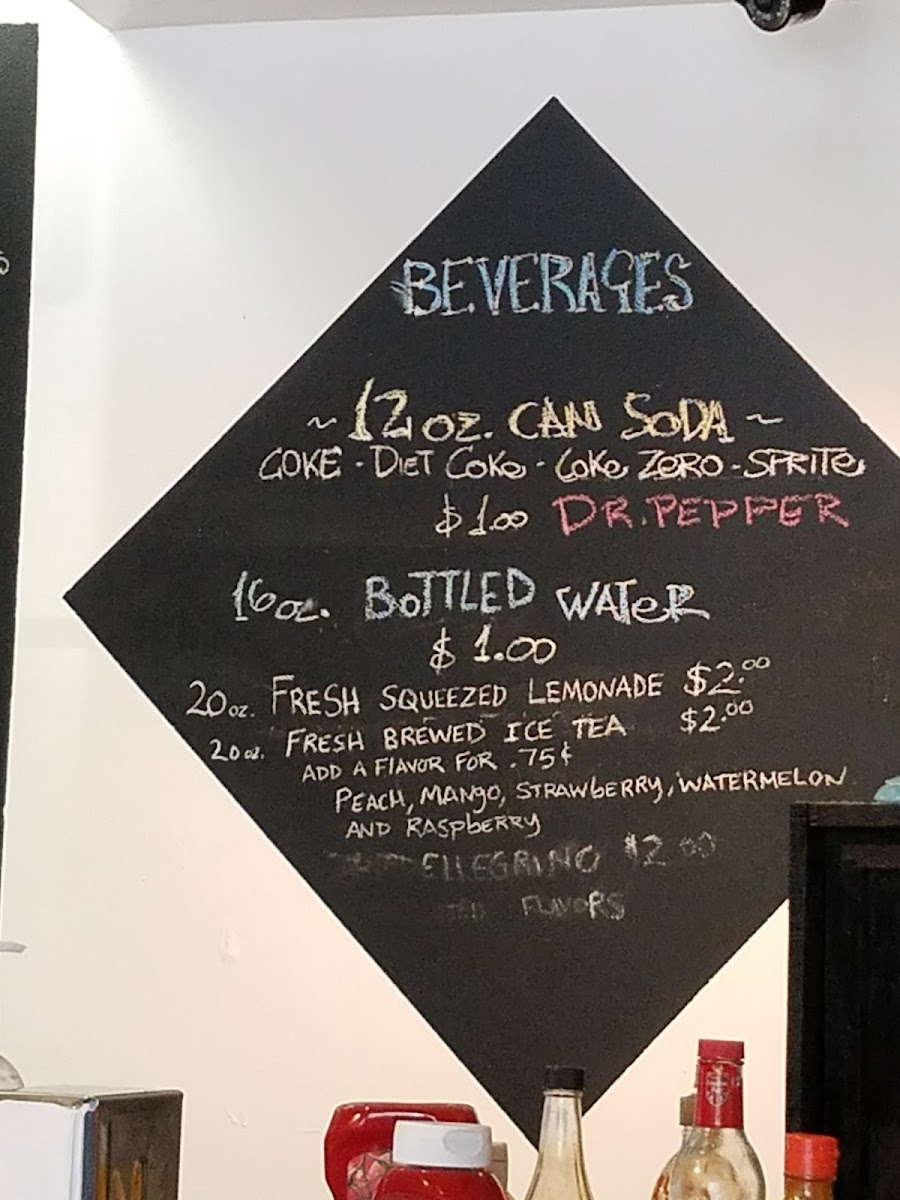 BEVERAGES
~ 12 oz. CAN SODA ~
COKE - DIET COKE - COKE ZERO - SPRITE
$1.00 DR. PEPPER
16 oz. BOTTLED WATER
$1.00
20 oz. FRESH SQUEEZED LEMONADE $2.00
20 oz. FRESH BREWED ICE TEA $2.00
ADD A FLAVOR FOR .75¢
PEACH, MANGO, STRAWBERRY, WATERMELON
AND RASPBERRY
ELLEGRINO $2.00
FLAVORS